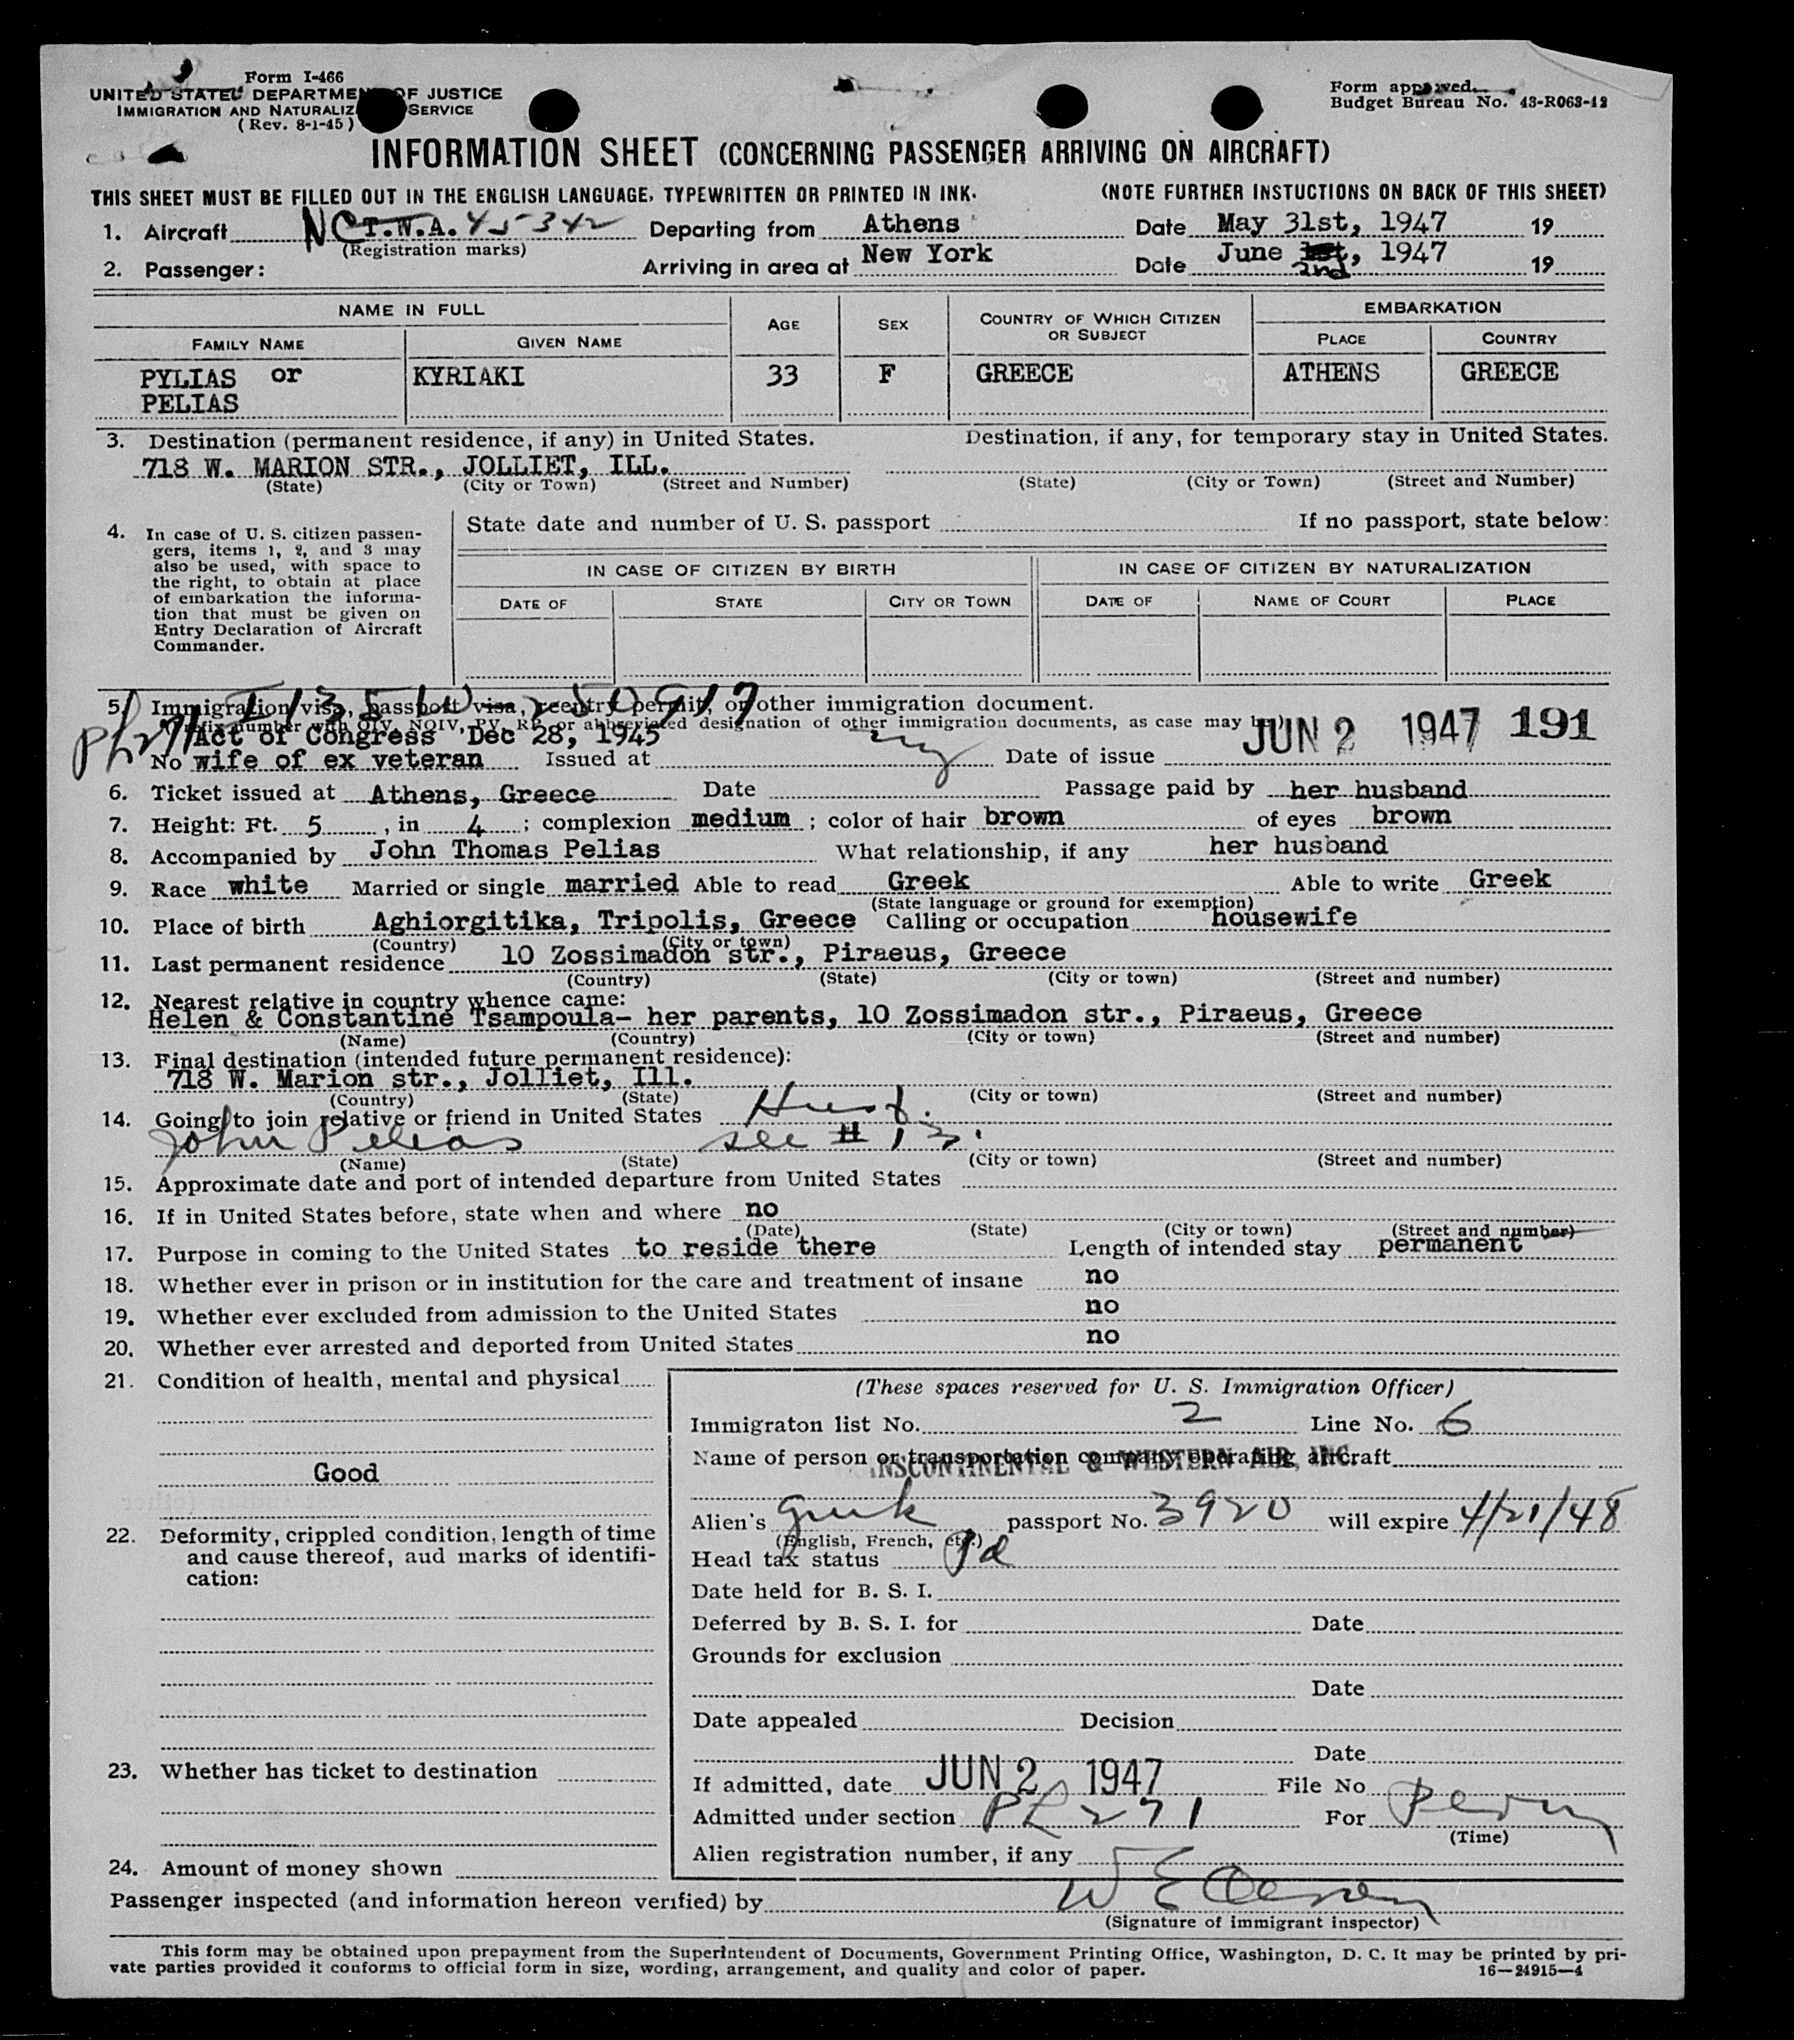 Form I-466
UNITED STATES DEPARTMENT OF JUSTICE
IMMIGRATION AND NATURALIZ SERVICE
(Rev. 8-1-45)
Form approved.
Budget Bureau No. 43-R063-12
INFORMATION SHEET (CONCERNING PASSENGER ARRIVING ON AIRCRAFT)
THIS SHEET MUST BE FILLED OUT IN THE ENGLISH LANGUAGE, TYPEWRITTEN OR PRINTED IN INK. (NOTE FURTHER INSTUCTIONS ON BACK OF THIS SHEET)
1. Aircraft NC T.W.A. 45342 Departing from Athens Date May 31st, 1947 19
(Registration marks)
2. Passenger: Arriving in area at New York Date June 1st, 2nd 1947 19
NAME IN FULL AGE SEX COUNTRY OF WHICH CITIZEN OR SUBJECT EMBARKATION
FAMILY NAME GIVEN NAME PLACE COUNTRY
PYLIAS or KYRIAKI 33 F GREECE ATHENS GREECE
PELIAS
3. Destination (permanent residence, if any) in United States. Destination, if any, for temporary stay in United States.
718 W. MARION STR., JOLLIET, ILL.
(State) (City or Town) (Street and Number) (State) (City or Town) (Street and Number)
4. In case of U. S. citizen passen-
gers, items 1, 2, and 3 may
also be used, with space to
the right, to obtain at place
of embarkation the informa-
tion that must be given on
Entry Declaration of Aircraft
Commander.
State date and number of U. S. passport If no passport, state below:
IN CASE OF CITIZEN BY BIRTH IN CASE OF CITIZEN BY NATURALIZATION
DATE OF STATE CITY OR TOWN DATE OF NAME OF COURT PLACE
5. Immigration visa, passport visa, reentry permit, or other immigration document.
number with QIV, NQIV, PV, RP, or abbreviated designation of other immigration documents, as case may be)
PL 271 Act of Congress Dec 28, 1945
No wife of ex veteran Issued at NY Date of issue JUN 2 1947 191
6. Ticket issued at Athens, Greece Date Passage paid by her husband
7. Height: Ft. 5, in 4; complexion medium; color of hair brown of eyes brown
8. Accompanied by John Thomas Pelias What relationship, if any her husband
9. Race white Married or single married Able to read Greek Able to write Greek
(State language or ground for exemption)
10. Place of birth Aghiorgitika, Tripolis, Greece Calling or occupation housewife
(Country) (City or town)
11. Last permanent residence 10 Zossimadon str., Piraeus, Greece
(Country) (State) (City or town) (Street and number)
12. Nearest relative in country whence came:
Helen & Constantine Tsampoula- her parents, 10 Zossimadon str., Piraeus, Greece
(Name) (Country) (City or town) (Street and number)
13. Final destination (intended future permanent residence):
718 W. Marion str., Jolliet, Ill.
(Country) (State) (City or town) (Street and number)
14. Going to join relative or friend in United States Husb.
John Pelias see # 13.
(Name) (State) (City or town) (Street and number)
15. Approximate date and port of intended departure from United States
16. If in United States before, state when and where no
(Date) (State) (City or town) (Street and number)
17. Purpose in coming to the United States to reside there Length of intended stay permanent
18. Whether ever in prison or in institution for the care and treatment of insane no
19. Whether ever excluded from admission to the United States no
20. Whether ever arrested and deported from United States no
21. Condition of health, mental and physical
Good
22. Deformity, crippled condition, length of time
and cause thereof, aud marks of identifi-
cation:
23. Whether has ticket to destination
24. Amount of money shown
(These spaces reserved for U. S. Immigration Officer)
Immigraton list No. 2 Line No. 6
Name of person or transportation company operating aircraft
TRANSCONTINENTAL & WESTERN AIR, INC.
Alien's Greek passport No. 3920 will expire 4/21/48
(English, French, etc.)
Head tax status Pd
Date held for B. S. I.
Deferred by B. S. I. for Date
Grounds for exclusion
Date
Date appealed Decision
Date
If admitted, date JUN 2 1947 File No
Admitted under section PL 271 For Perm
(Time)
Alien registration number, if any
Passenger inspected (and information hereon verified) by
(Signature of immigrant inspector)
This form may be obtained upon prepayment from the Superintendent of Documents, Government Printing Office, Washington, D. C. It may be printed by pri-
vate parties provided it conforms to official form in size, wording, arrangement, and quality and color of paper. 16—24915—4